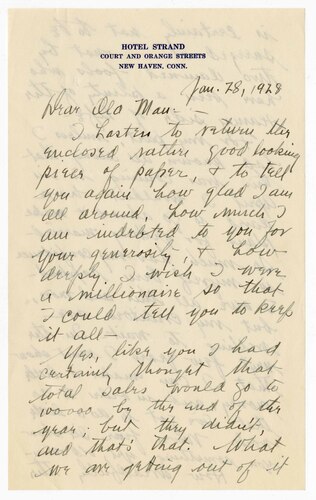 HOTEL STRAND
COURT AND ORANGE STREETS
NEW HAVEN, CONN.
Jan. 28, 1928
Dear Old Man:—
I hasten to return the
enclosed rather good looking
piece of paper, & to tell
you again how glad I am
all around, how much I
am indebted to you for
your generosity, & how
deeply I wish I were
a millionaire so that
I could tell you to keep
it all—
Yes, like you I had
certainly thought that
total sales would go to
100000 by the end of the
year; but they didn't,
and that's that. What
we are getting out of it